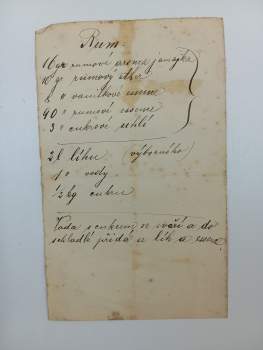 Rum
16 gr rumové aroma jamajka
10 gr rumový éther
2 " vanilkové essence
40 " rumové essence
3 " cukrové uhlí
2 l líhu (výborného)
1 " vody
1/2 kg cukru
Voda s cukrem se svaří a do
schladlé přidá se líh a essence.